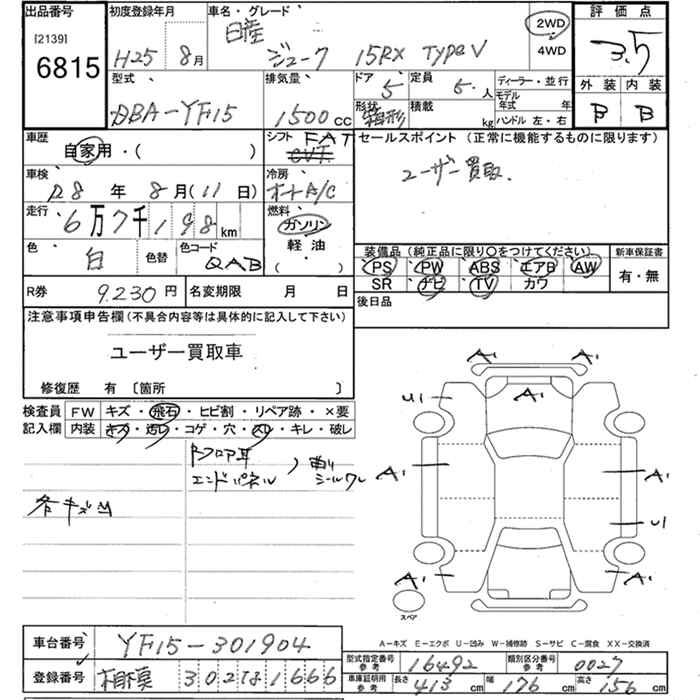 出品番号 初度登録年月 車名・グレード 評価点
[2139] 6815
H25 8月 日産 ジューク 15RX TypeV 2WD 4WD 3.5
型式 排気量 ドア 定員 ディーラー・並行 外装 内装
DBA-YF15 1500cc 5 5人 モデル年式 年 B B
形状 箱形 積載 kg ハンドル 左・右
車歴 シフト FAT CVT セールスポイント(正常に機能するものに限ります)
自家用・( ) ユーザー買取
車検 冷房
R8年8月(11日) オートA/C
走行 燃料
6万7千198km ガソリン
色 色コード 軽油
白 色替 QAB ( )
装備品(純正品に限り○をつけてください) 新車保証書
PS PW ABS エアB AW 有・無
SR ナビ TV カワ
R券 9,230円 名変期限 月 日 後日品
注意事項申告欄(不具合内容等は具体的に記入して下さい)
ユーザー買取車
修復歴 有 〔箇所 〕
検査員 FW キズ・飛石・ヒビ割・リペア跡・×要
記入欄 内装 キズ・汚レ・コゲ・穴・スレ・キレ・破レ
Bフロア耳
エンドパネル 曲 シールワレ
各キズ凹
A1 A1
A1
U1
A1 A1
U1
A1 A1
スペア
A-キズ E-エクボ U-凹み W-補修跡 S-サビ C-腐食 XX-交換済
車台番号 YF15-301904
型式指定番号 参考 16492 類別区分番号 参考 0027
登録番号 相模 302す1666
車庫証明用 参考 長さ 413cm 幅 176cm 高さ 156cm